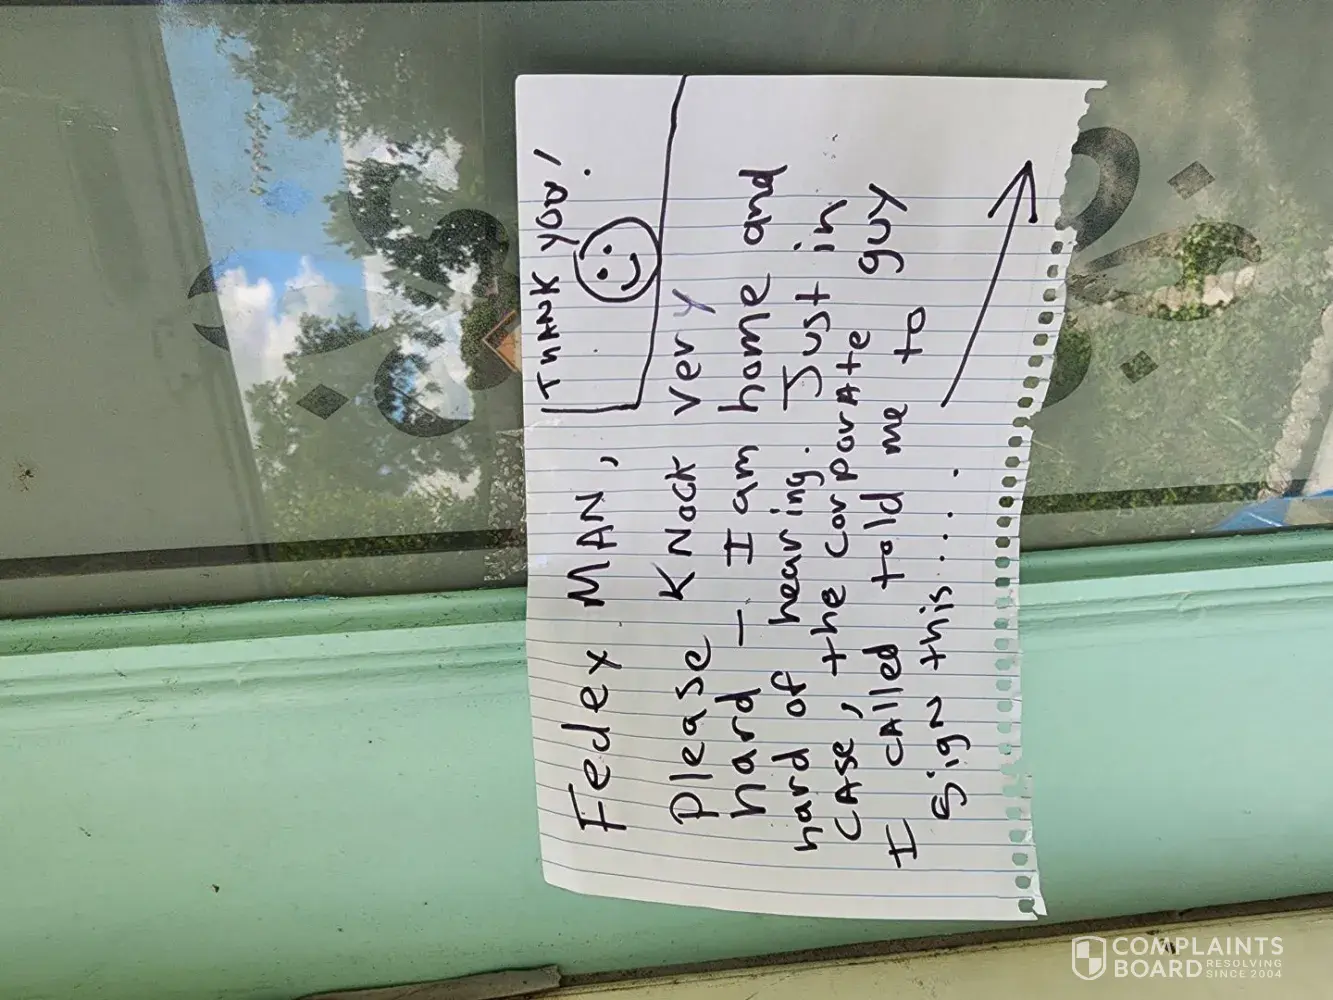 Fedex MAN,
THANK YOU!
Please Knock very
hard – I am home and
hard of hearing. Just in
CASE, the corporate guy
I called told me to
sign this....
COMPLAINTS
BOARD RESOLVING
SINCE 2004